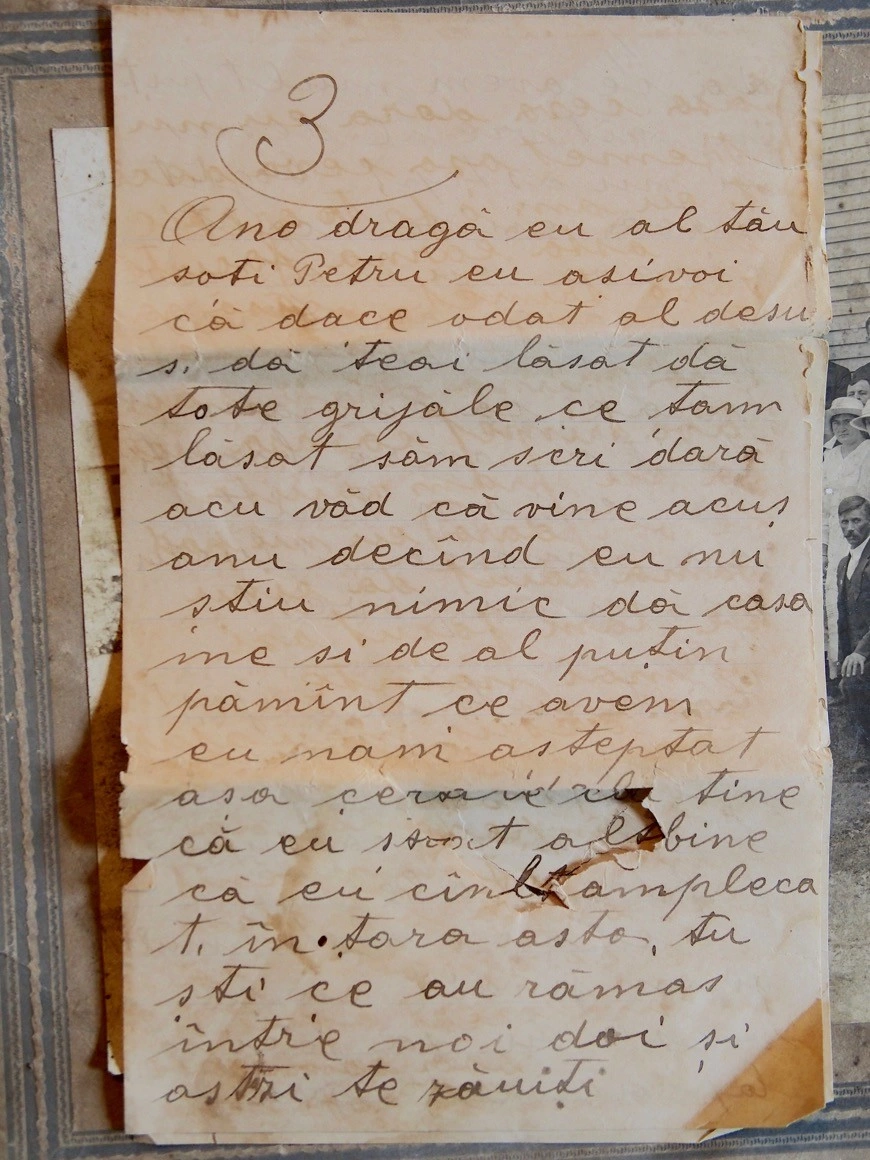 3
Ano dragă eu al tău
soti Petru eu asivoi
că dace odat al desu
si dă teai lăsat dă
tote grijăle ce tam
lăsat săm scri dară
acu văd că vine acuș
anu decînd eu nu
stiu nimic dă casa
me si de al putin
pămînt ce avem
eu nam asteptat
asa cera tine
că eu sunt bine
că eu ampleca
t, în țara asta, tu
sti ce au rămas
întrie noi doi si
astzi te